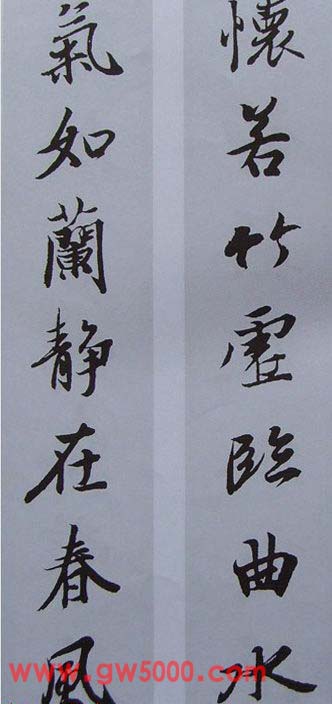 懷若竹虛臨曲水
氣如蘭靜在春風
www.gw5000.com